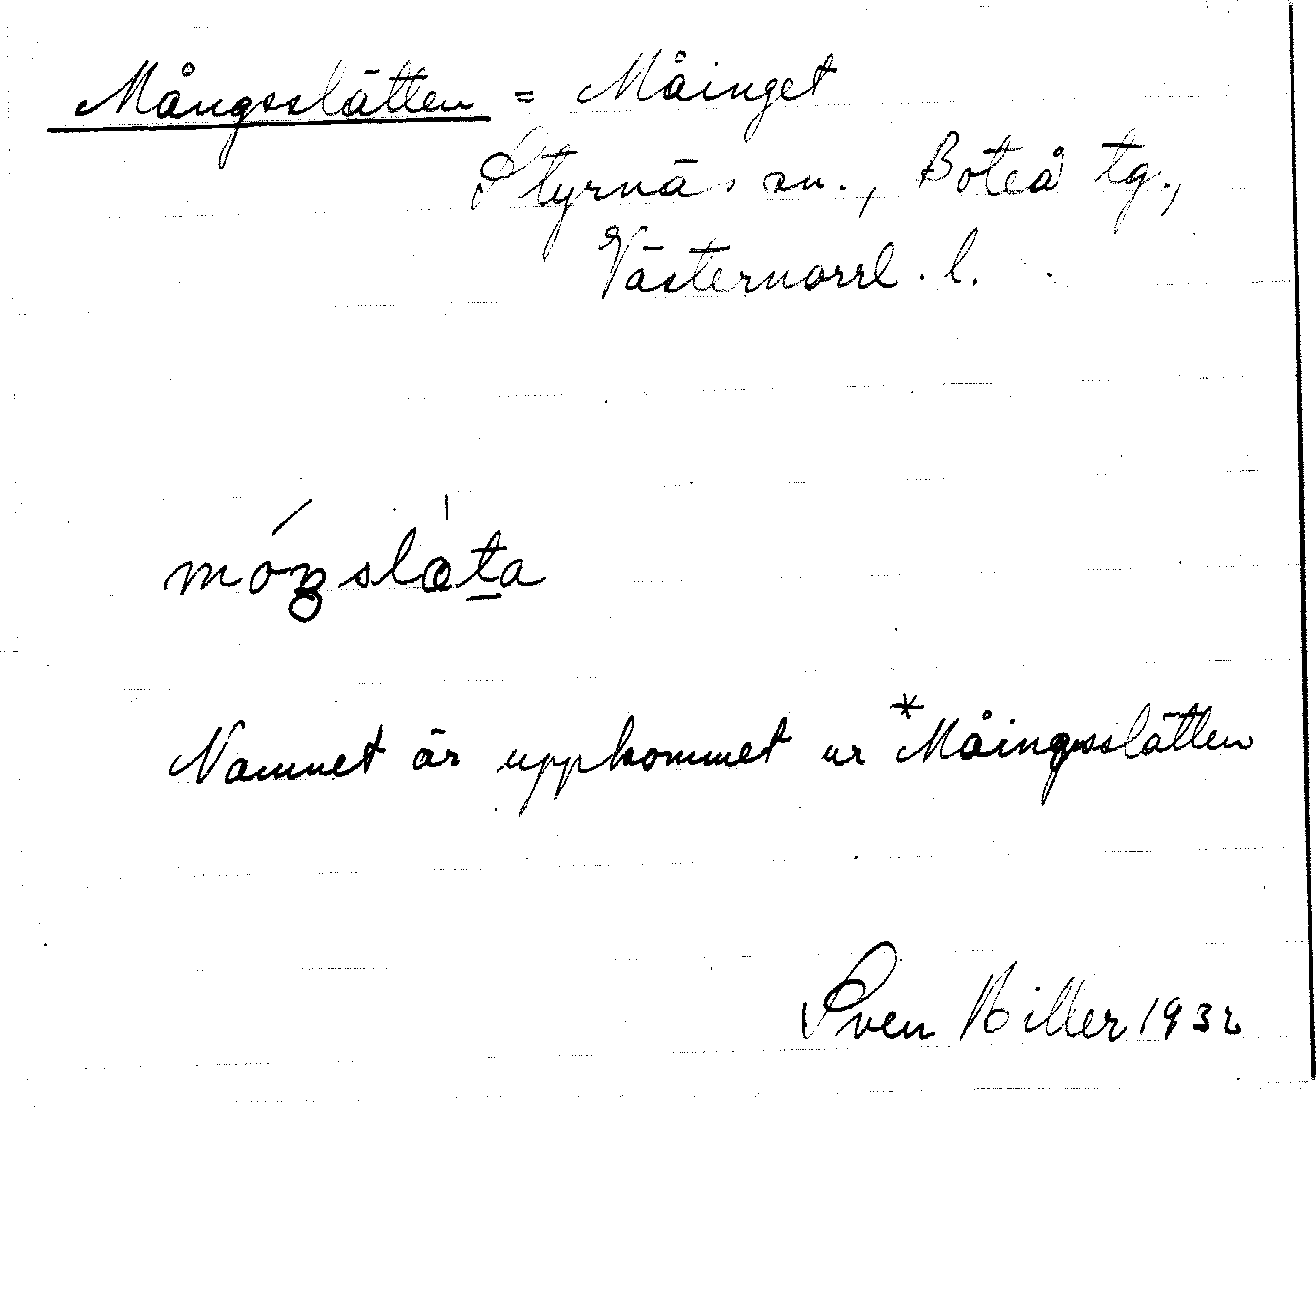 Mångsslätten = Måinget
Styrnäs sn., Boteå tg.,
Västernorrl. l.
Namnet är uppkommet ur *Måingsslätten
Sven Biller 1932